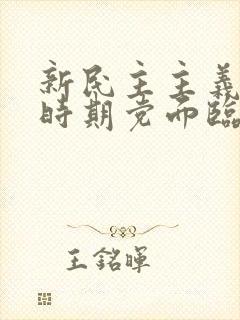 新民主主義
時期党面臨
王銘暉